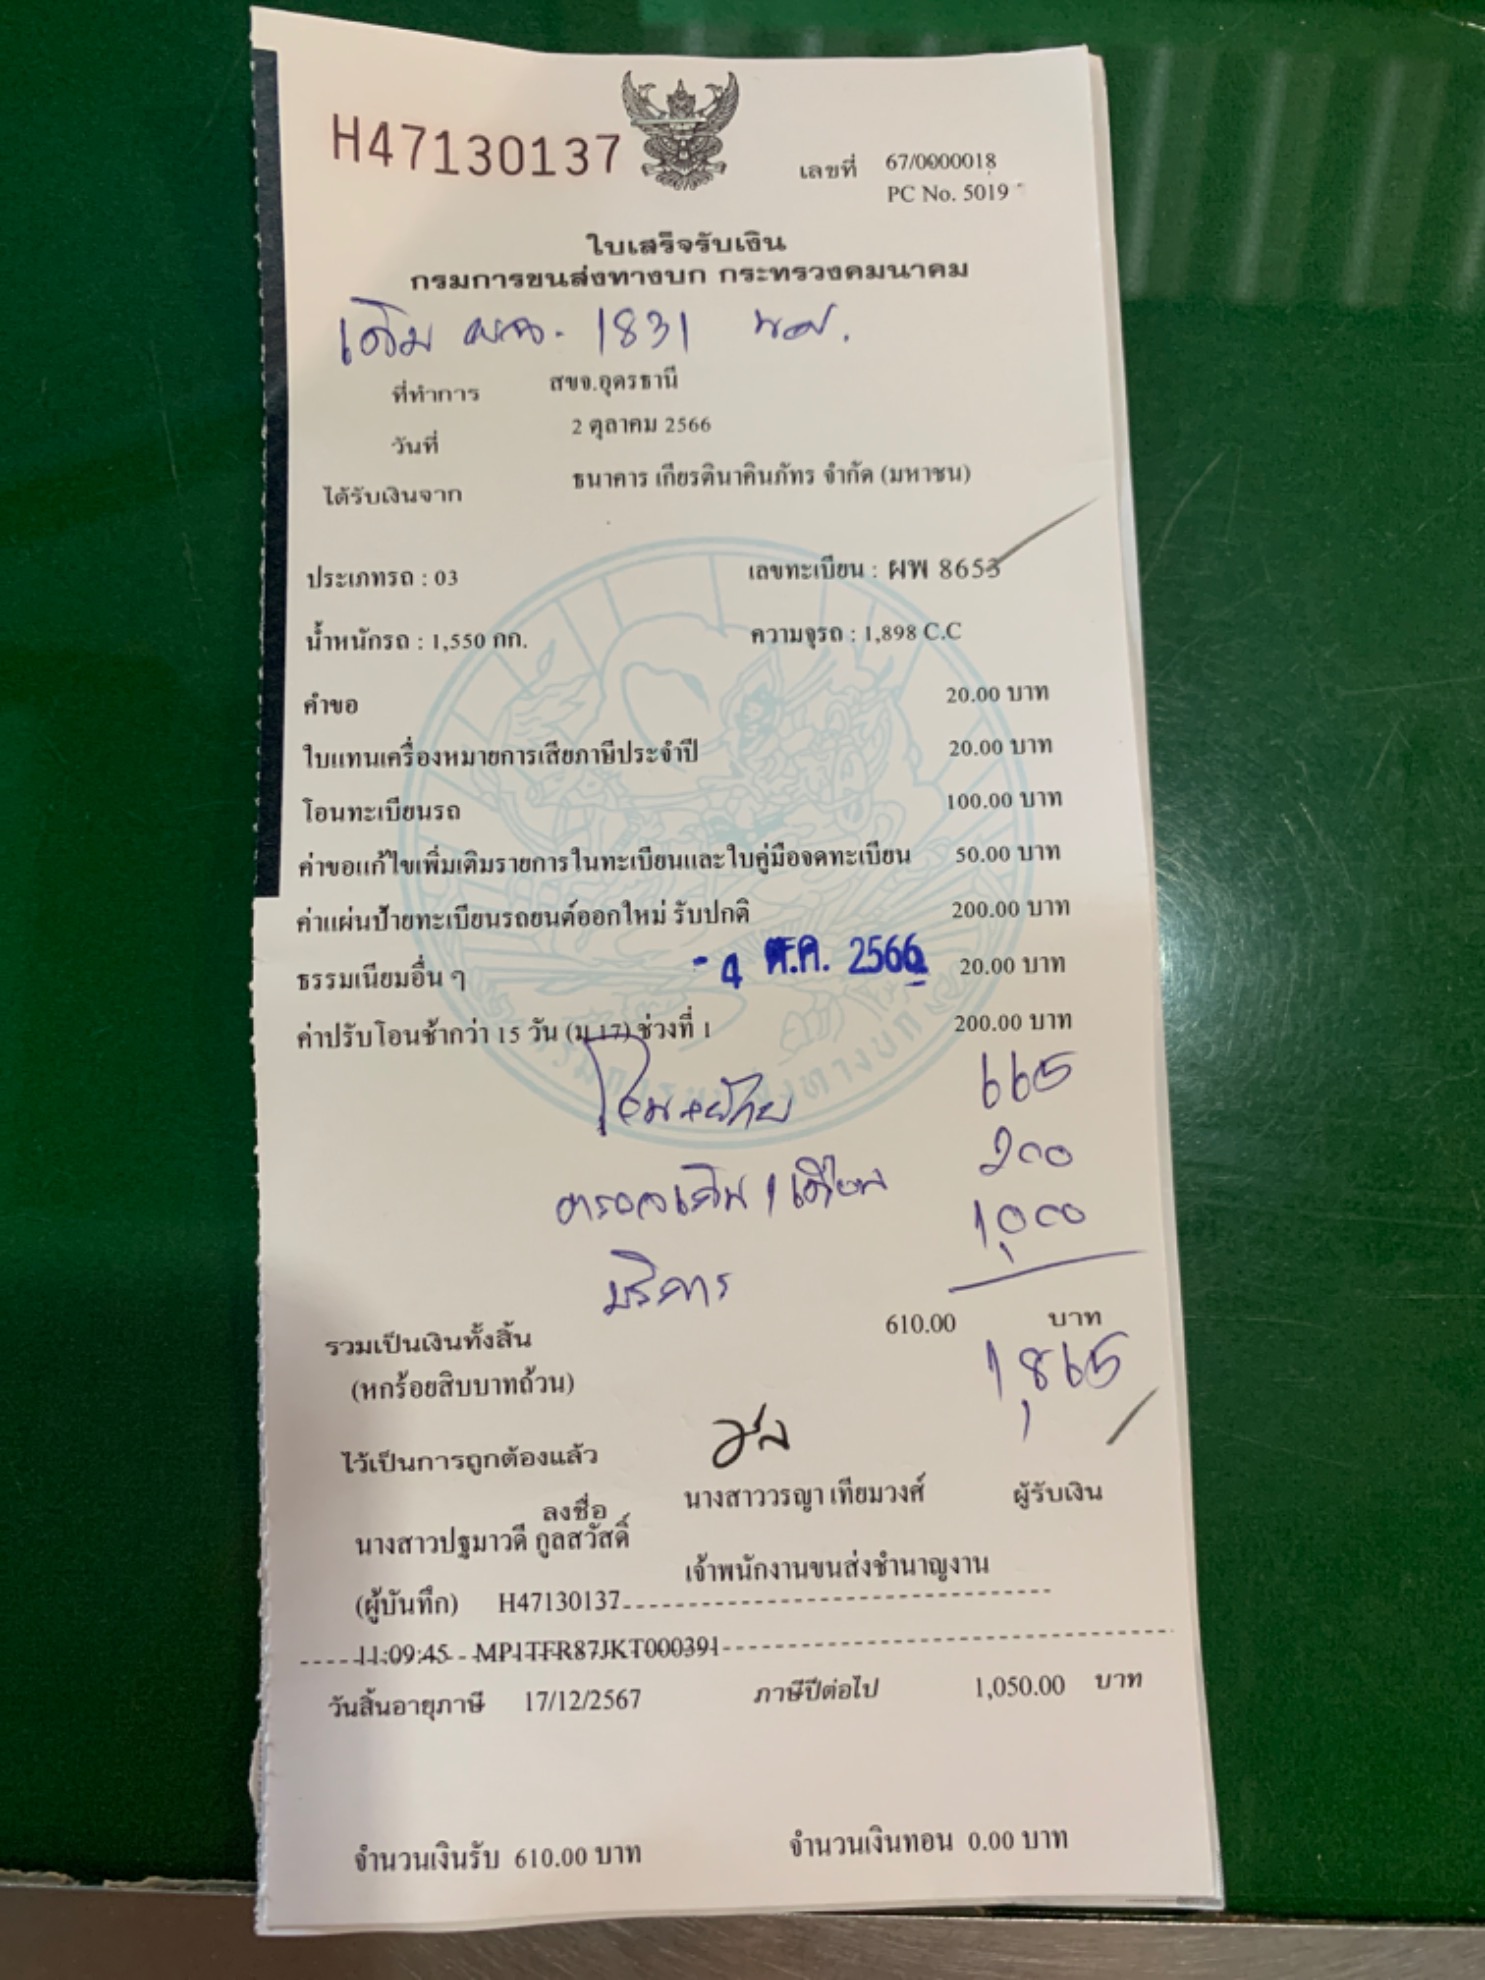 H47130137
เลขที่ 67/0000018
PC No. 5019
ใบเสร็จรับเงิน
กรมการขนส่งทางบก กระทรวงคมนาคม
เดิม 1831
ที่ทำการ สขจ.อุดรธานี
วันที่ 2 ตุลาคม 2566
ได้รับเงินจาก ธนาคาร เกียรตินาคินภัทร จำกัด (มหาชน)
ประเภทรถ : 03 เลขทะเบียน : ผพ 8653
น้ำหนักรถ : 1,550 กก. ความจุรถ : 1,898 C.C
คำขอ 20.00 บาท
ใบแทนเครื่องหมายการเสียภาษีประจำปี 20.00 บาท
โอนทะเบียนรถ 100.00 บาท
ค่าขอแก้ไขเพิ่มเติมรายการในทะเบียนและใบคู่มือจดทะเบียน 50.00 บาท
ค่าแผ่นป้ายทะเบียนรถยนต์ออกใหม่ รับปกติ 200.00 บาท
ธรรมเนียมอื่น ๆ 20.00 บาท
- 4 ต.ค. 2566
ค่าปรับโอนช้ากว่า 15 วัน (ม 17) ช่วงที่ 1 200.00 บาท
665
200
บริการ 1,000
รวมเป็นเงินทั้งสิ้น 610.00 บาท
(หกร้อยสิบบาทถ้วน) 1,865
ไว้เป็นการถูกต้องแล้ว
ลงชื่อ นางสาววรญา เทียมวงศ์ ผู้รับเงิน
นางสาวปฐมาวดี กูลสวัสดิ์
เจ้าพนักงานขนส่งชำนาญงาน
(ผู้บันทึก) H47130137
11:09:45 MP1TFR87JKT000391
วันสิ้นอายุภาษี 17/12/2567 ภาษีปีต่อไป 1,050.00 บาท
จำนวนเงินรับ 610.00 บาท จำนวนเงินทอน 0.00 บาท